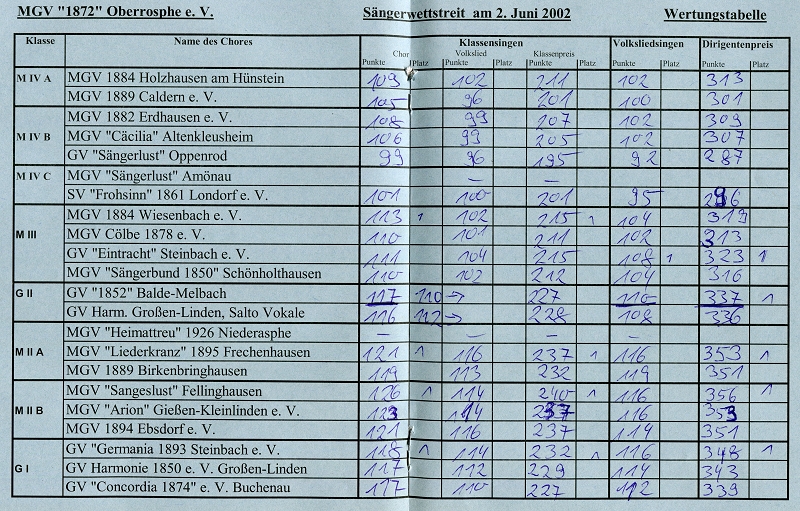 MGV "1872" Oberrosphe e. V. Sängerwettstreit am 2. Juni 2002 Wertungstabelle
Klasse Name des Chores Klassensingen Volksliedsingen Dirigentenpreis
Chor Volkslied Klassenpreis
Punkte Platz Punkte Platz Punkte Platz Punkte Platz Punkte Platz
M IV A MGV 1884 Holzhausen am Hünstein 109 102 211 102 313
MGV 1889 Caldern e. V. 105 96 201 100 301
M IV B MGV 1882 Erdhausen e. V. 108 99 207 102 309
MGV "Cäcilia" Altenkleusheim 106 99 205 102 307
GV "Sängerlust" Oppenrod 99 96 195 92 287
M IV C MGV "Sängerlust" Amönau – – –
SV "Frohsinn" 1861 Londorf e. V. 101 100 201 95 296
M III MGV 1884 Wiesenbach e. V. 113 1 102 215 1 104 319
MGV Cölbe 1878 e. V. 110 101 211 102 313
GV "Eintracht" Steinbach e. V. 111 104 215 108 1 323 1
MGV "Sängerbund 1850" Schönholthausen 110 102 212 104 316
G II GV "1852" Balde-Melbach 117 110 → 227 110 337 1
GV Harm. Großen-Linden, Salto Vokale 116 112 → 228 108 336
M II A MGV "Heimattreu" 1926 Niederasphe – – – –
MGV "Liederkranz" 1895 Frechenhausen 121 1 116 237 1 116 353 1
MGV 1889 Birkenbringhausen 119 113 232 119 351
M II B MGV "Sangeslust" Fellinghausen 126 1 114 240 1 116 356 1
MGV "Arion" Gießen-Kleinlinden e. V. 123 114 237 116 353
MGV 1894 Ebsdorf e. V. 121 116 237 114 351
G I GV "Germania 1893 Steinbach e. V. 118 1 114 232 1 116 348 1
GV Harmonie 1850 e. V. Großen-Linden 117 112 229 114 343
GV "Concordia 1874" e. V. Buchenau 117 110 227 112 339